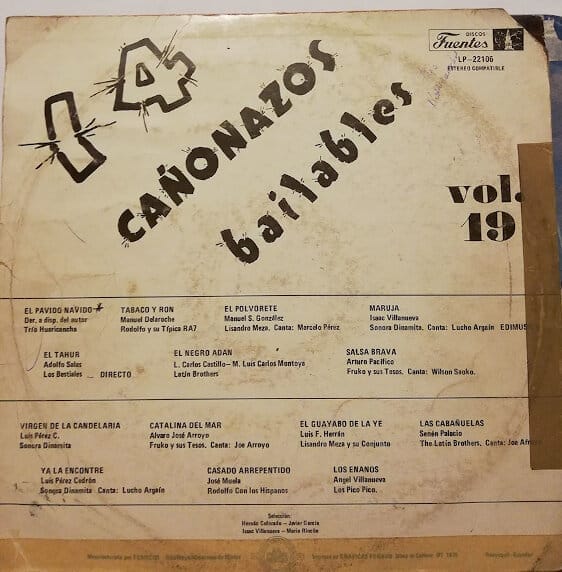 14
CAÑONAZOS
bailables
DISCOS
Fuentes
LP-22106
ESTEREO COMPATIBLE
vol.
19
EL PAVIDO NAVIDO
Der. a disp. del autor
Trío Huaricancha
TABACO Y RON
Manuel Delaroche
Rodolfo y su Típica RA7
EL POLVORETE
Manuel S. González
Lisandro Meza. Canta: Marcelo Pérez
MARUJA
Isaac Villanueva
Sonora Dinamita. Canta: Lucho Argaín EDIMUS
EL TAHUR
Adolfo Salas
Los Bestiales _ DIRECTO
EL NEGRO ADAN
L. Carlos Castillo - M. Luis Carlos Montoya
Latin Brothers
SALSA BRAVA
Arturo Pacífico
Fruko y sus Tesos. Canta: Wilson Saoko.
VIRGEN DE LA CANDELARIA
Luis Pérez C.
Sonora Dinamita
CATALINA DEL MAR
Alvaro José Arroyo
Fruko y sus Tesos. Canta: Joe Arroyo
EL GUAYABO DE LA YE
Luis F. Herrán
Lisandro Meza y su Conjunto
LAS CABAÑUELAS
Senén Palacio
The Latin Brothers. Canta: Joe
YA LA ENCONTRE
Luis Pérez Cedrón
Sonora Dinamita Canta: Lucho Argaín
CASADO ARREPENTIDO
José Muela
Rodolfo Con los Hispanos
LOS ENANOS
Angel Villanueva
Los Pico Pico.
Selección:
Hernán Colorado - Javier García
Isaac Villanueva - Mario Rincón